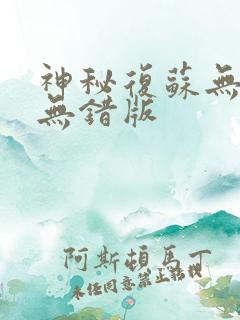 神秘復蘇無
無錯版
阿斯頓馬丁
未任同意禁止轉載